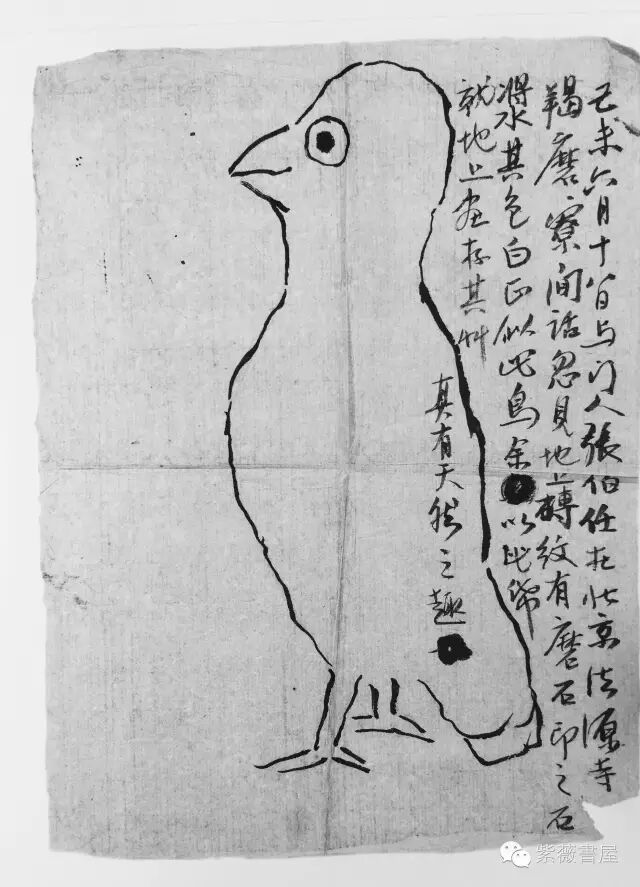 己未六月十八日与门人張伯任在北京法源寺
羯磨寮間話忽見地上磚紋有磨石印之石
漿水其色白正似此鳥余以此紙
就地上画存其艸
真有天然之趣
紫薇書屋